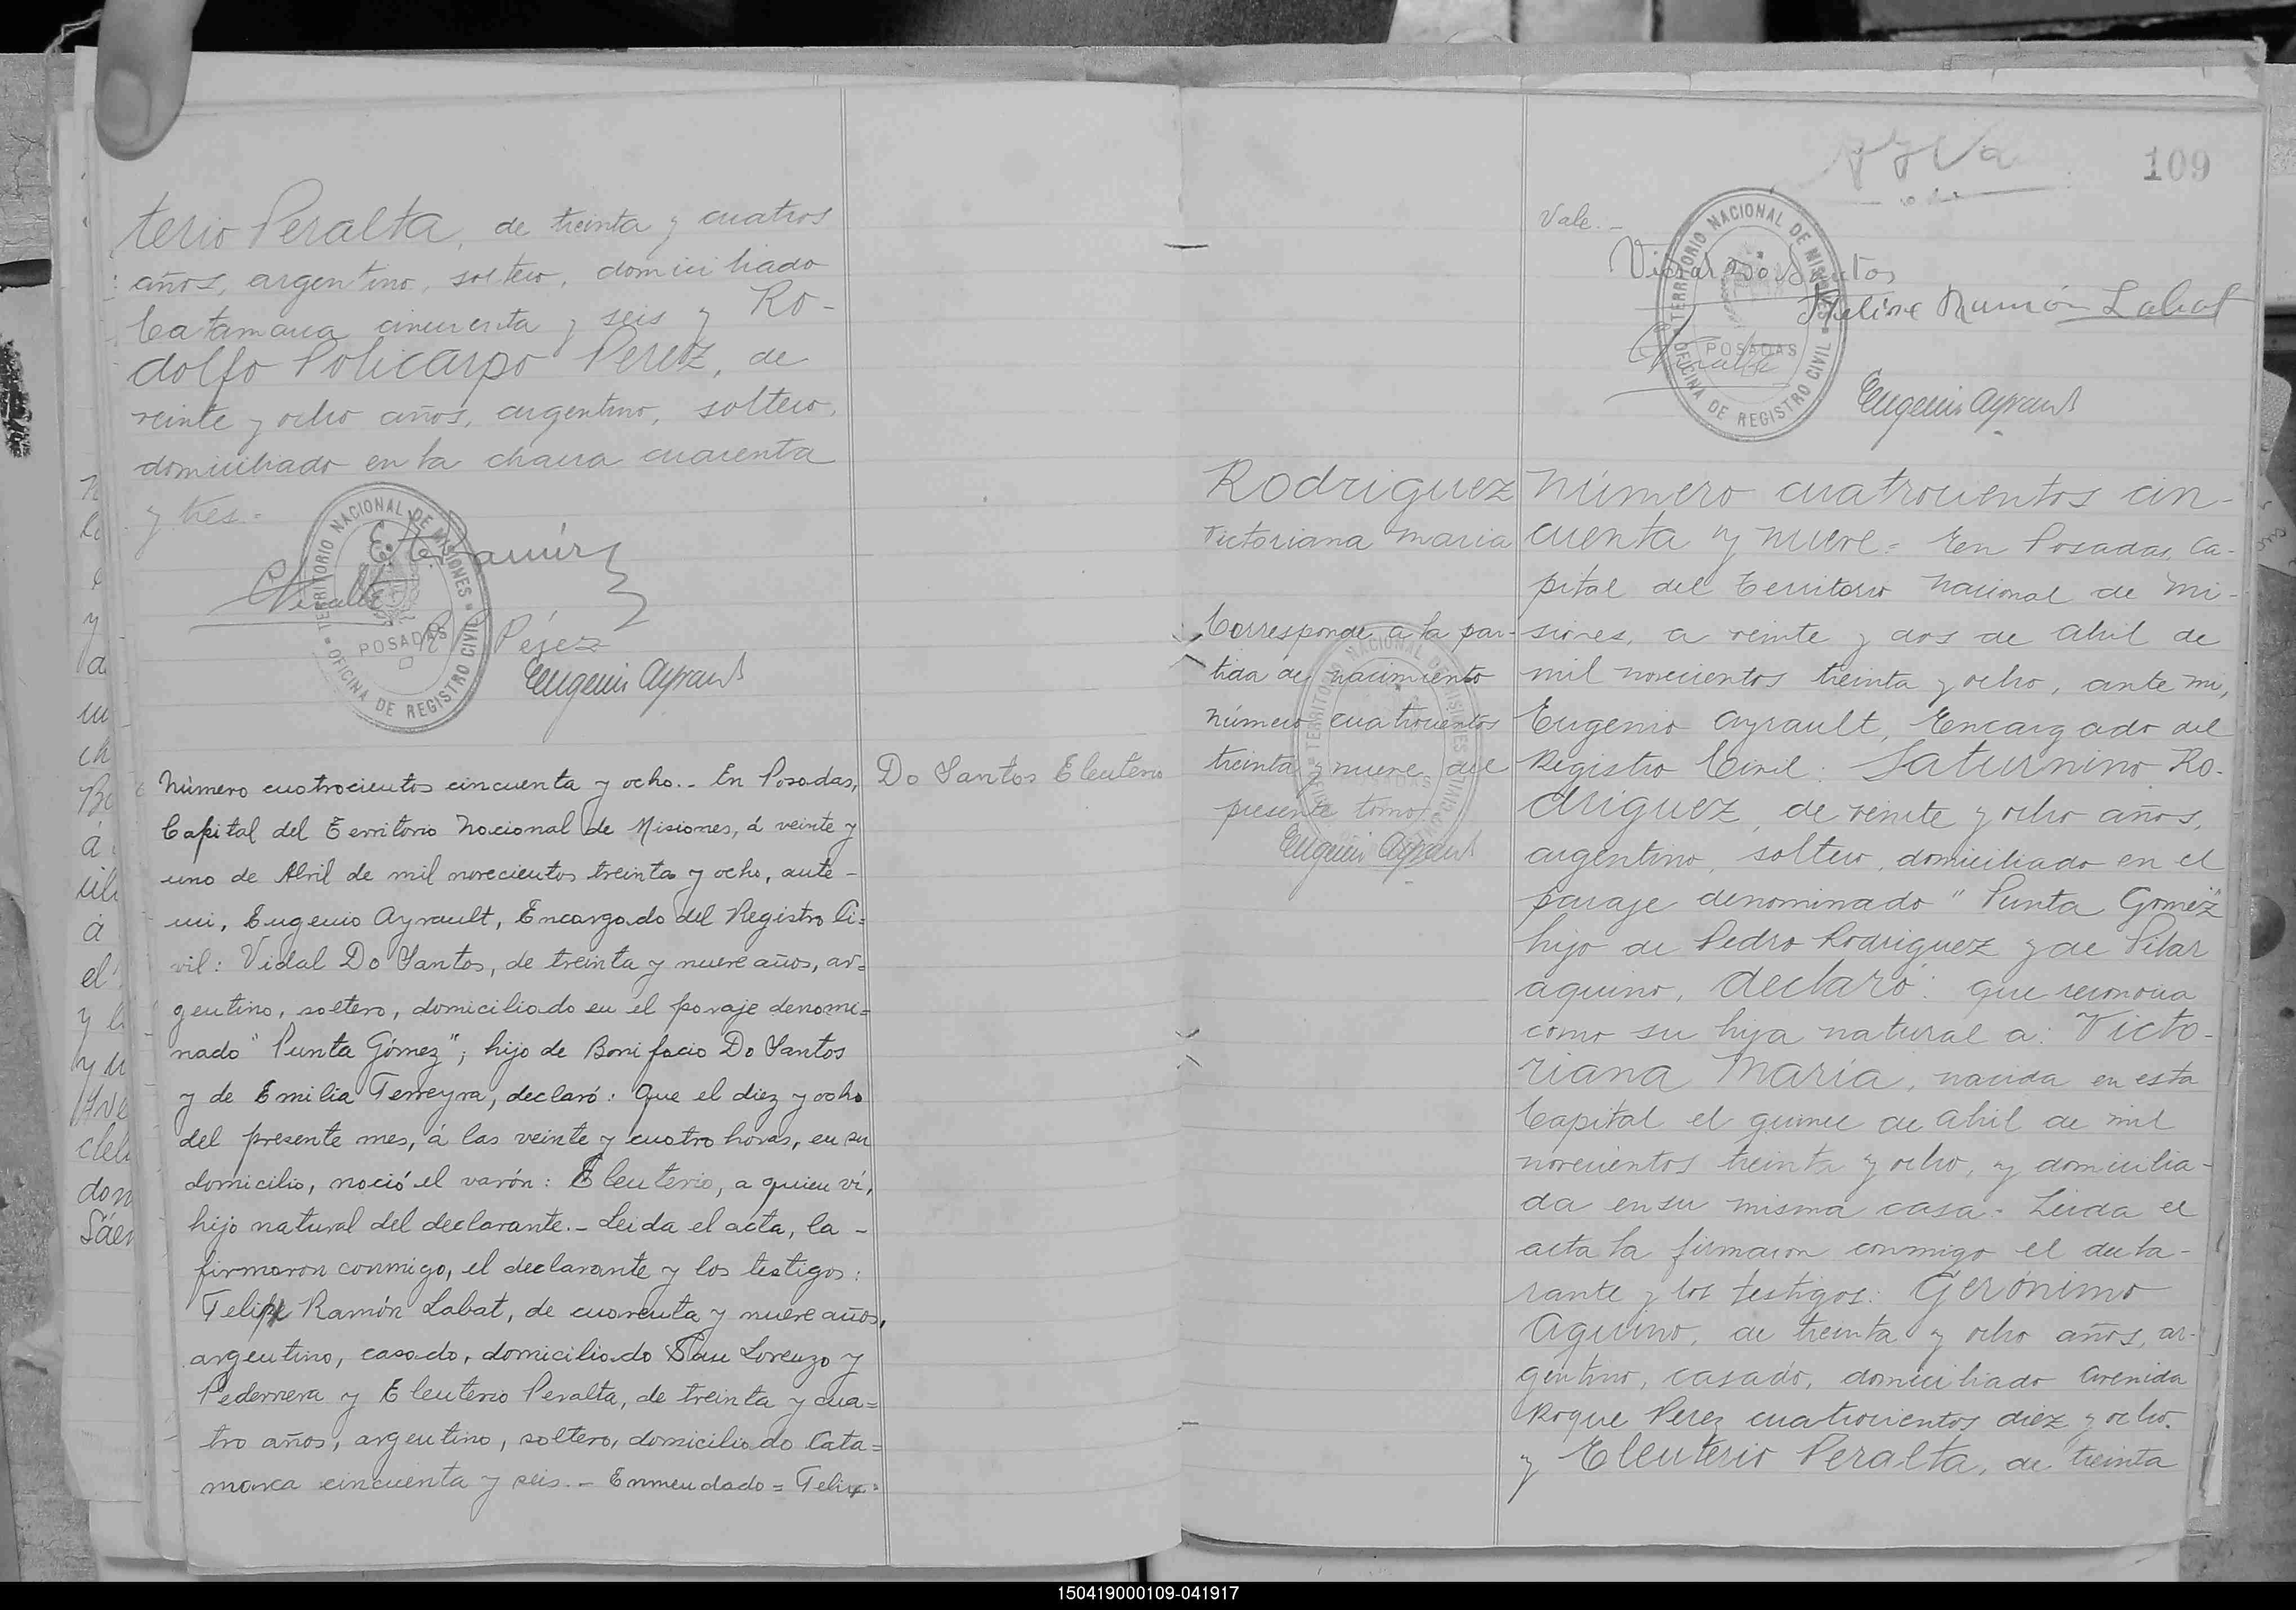 terio Peralta, de treinta y cuatros
años, argentino, soltero, domiciliado
Catamarca cincuenta y seis y Ro-
dolfo Policarpo Perez, de
veinte y ocho años, argentino, soltero,
domiciliado en la chacra cuarenta
y tres.-
TERRITORIO NACIONAL DE MISIONES
POSADAS
OFICINA DE REGISTRO CIVIL
EPeralta
R Pérez
Eugenio Ayrault
Número cuatrocientos cincuenta y ocho.- En Posadas,
Capital del Territorio Nacional de Misiones, á veinte y
uno de Abril de mil novecientos treinta y ocho, ante-
mi, Eugenio Ayrault, Encargado del Registro Ci=
vil: Vidal Do Santos, de treinta y nueve años, ar=
gentino, soltero, domiciliado en el paraje denomi=
nado "Punta Gómez"; hijo de Bonifacio Do Santos
y de Emilia Ferreyra, declaró: Que el diez y ocho
del presente mes, á las veinte y cuatro horas, en su
domicilio, nació el varón: Eleuterio, a quien ví,
hijo natural del declarante.- Leida el acta, la-
firmaron conmigo, el declarante y los testigos:
Felipe Ramón Labat, de cuarenta y nueve años,
argentino, casado, domiciliado San Lorenzo y
Pedernera y Eleuterio Peralta, de treinta y cua=
tro años, argentino, soltero, domiciliado Cata=
marca cincuenta y seis.- Enmendado=
Do Santos Eleuterio
109
Vale.-
Vidal Do Santos
Felipe Ramón Labat
TERRITORIO NACIONAL DE MISIONES
POSADAS
OFICINA DE REGISTRO CIVIL
EPeralta
Eugenio Ayrault
Rodriguez
Victoriana Maria
Corresponde a la par-
tida de nacimiento
número cuatrocientos
treinta y nueve del
presente tomo
Eugenio Ayrault
Número cuatrocientos cin-
cuenta y nueve.- En Posadas, Ca-
pital del Territorio Nacional de Mi-
siones, a veinte y dos de Abril de
mil novecientos treinta y ocho, ante mi,
Eugenio Ayrault, Encargado del
Registro Civil: Saturnino Ro-
driguez, de veinte y ocho años,
argentino, soltero, domiciliado en el
paraje denominado "Punta Gomez"
hijo de Pedro Rodriguez y de Pilar
Aquino, declaró: que reconocia
como su hija natural a: Victo-
riana María, nacida en esta
Capital el quince de Abril de mil
novecientos treinta y ocho, y domicilia-
da en su misma casa.- Leida el
acta la firmaron conmigo el decla-
rante y los testigos: Gerónimo
Aquino, de treinta y ocho años, ar-
gentino, casado, domiciliado Avenida
Roque Perez cuatrocientos diez y ocho.
y Eleuterio Peralta, de treinta
150419000109-041917